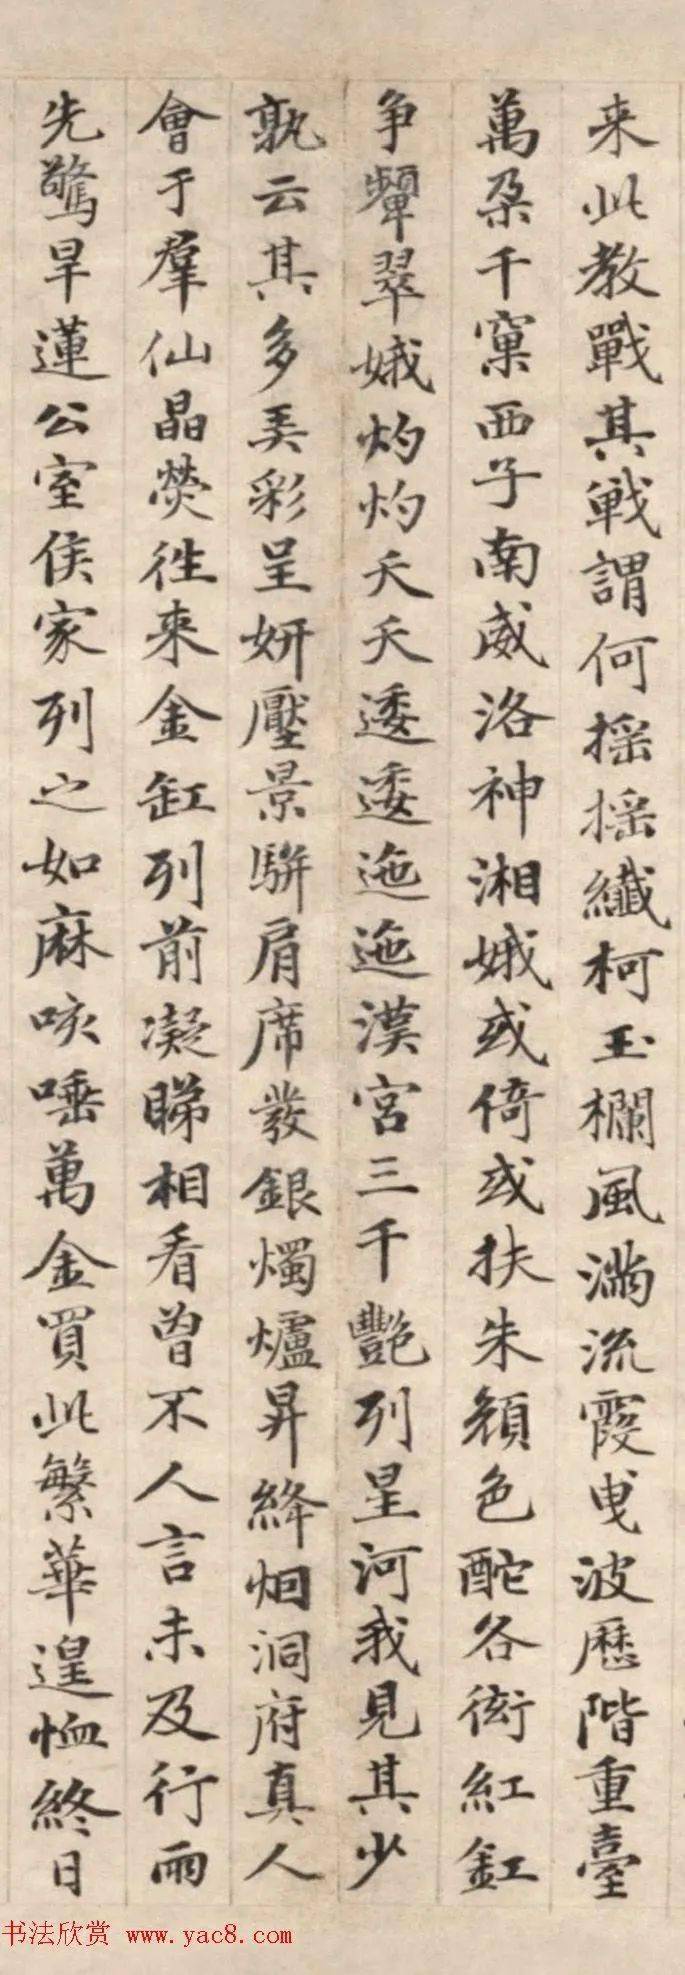 来此教戰其戰謂何摇摇纖柯玉欄風滿流霞曳波歷階重臺
萬朶千窠西子南威洛神湘娥或倚或扶朱顔色酡各衒紅釭
争顰翠娥灼灼夭夭逶逶迤迤漢宮三千艷列星河我見其少
孰云其多弄彩呈妍壓景駢肩席發銀燭爐昇絳烟洞府真人
會于羣仙晶熒往來金缸列前凝睇相看曾不人言未及行雨
先驚旱蓮公室侯家列之如麻咳唾萬金買此繁華遑恤終日
书法欣赏 www.yac8.com